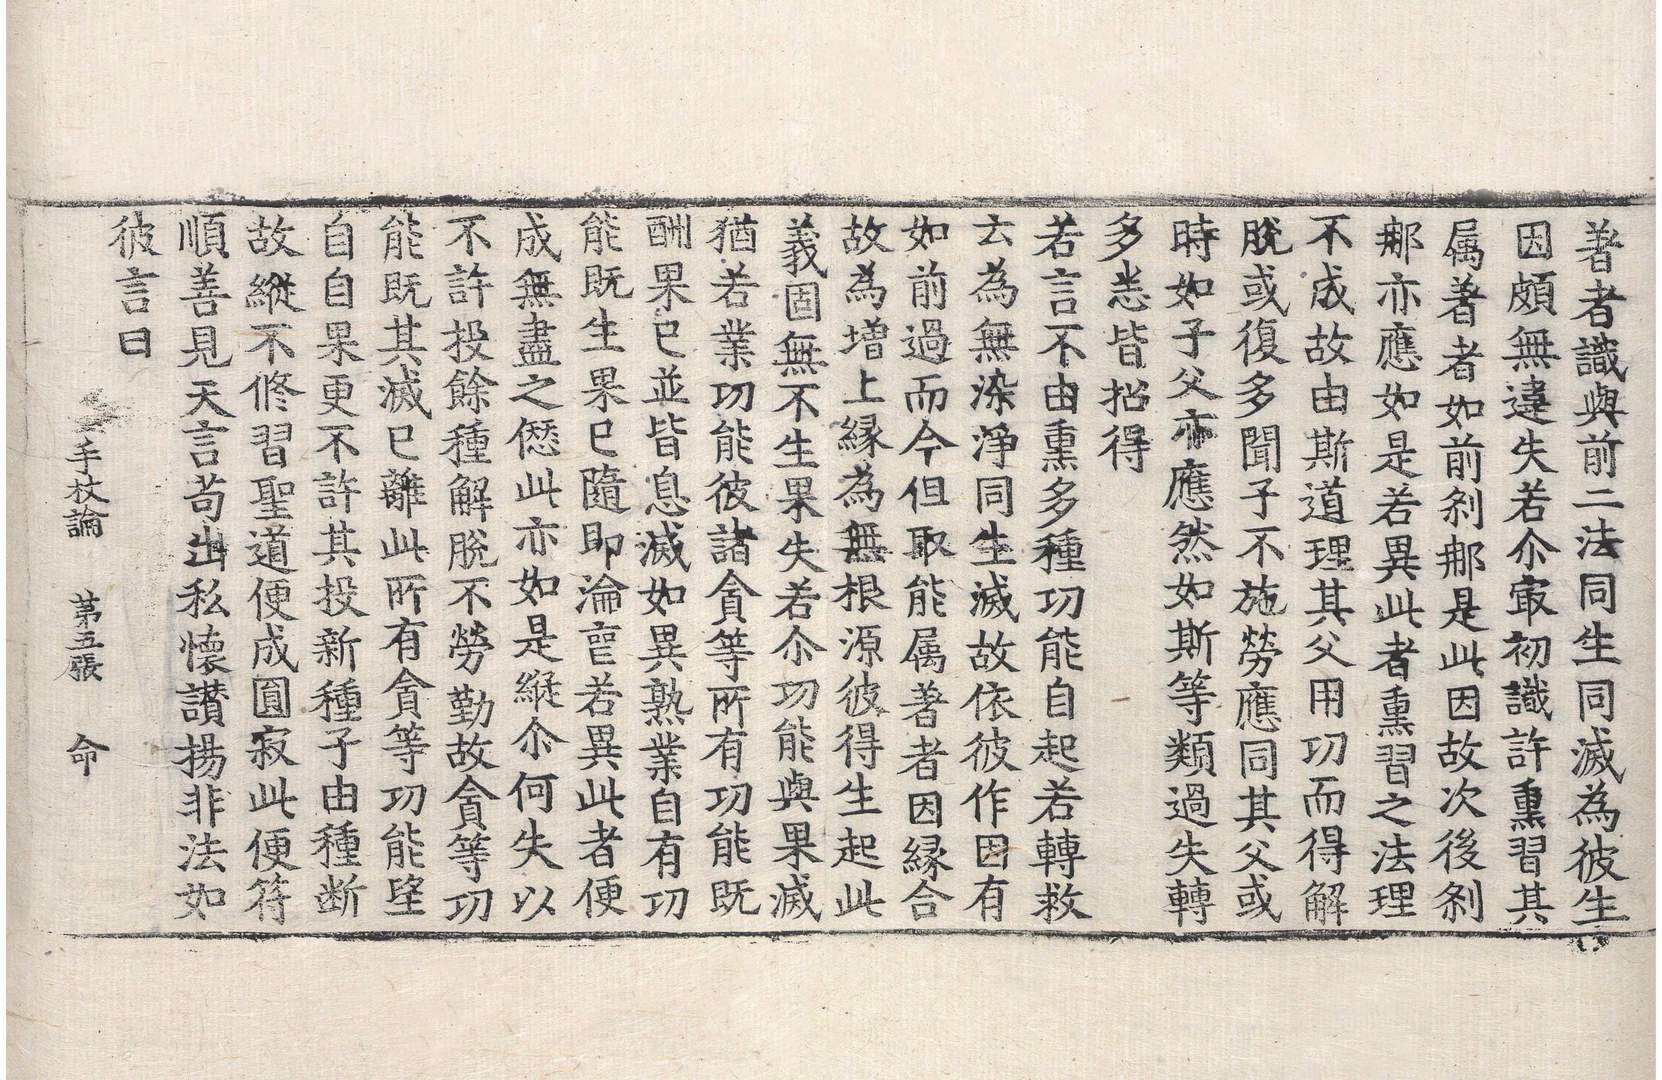 著者識與前二法同生同滅為彼生
因頗無違失若尒㝡初識許熏習其
属著者如前刹那是此因故次後刹
那亦應如是若異此者熏習之法理
不成故由斯道理其父用功而得解
脫或復多聞子不施勞應同其父或
時如子父亦應然如斯等類過失轉
多悉皆招得
若言不由熏多種功能自起若轉救
云為無染淨同生滅故依彼作因有
如前過而今但取能属著者因縁合
故為增上縁為無根源彼得生起此
義固無不生果失若尒功能與果滅
猶若業功能彼諸貪等所有功能既
酬果已並皆息滅如異熟業自有功
能既生果已隨即淪亡若異此者便
成無盡之愆此亦如是縱尒何失以
不許投餘種解脫不勞勤故貪等功
能既其滅已離此所有貪等功能望
自自果更不許其投新種子由種断
故縱不修習聖道便成圓寂此便符
順善見天言苟出私懷讃揚非法如
彼言曰
手杖論 第五張 命